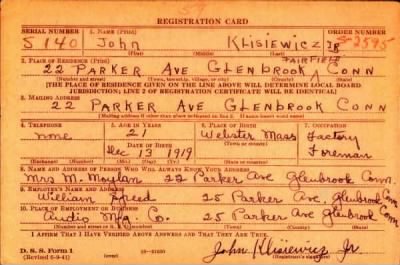 REGISTRATION CARD
SERIAL NUMBER 1. NAME (Print) ORDER NUMBER
S 140 John KLISIEWICZ JR S-2595
(First) (Middle) (Last)
2. PLACE OF RESIDENCE (Print) FAIRFIELD
22 PARKER AVE GLENBROOK CONN
(Number and street) (Town, township, village, or city) (County) (State)
[THE PLACE OF RESIDENCE GIVEN ON THE LINE ABOVE WILL DETERMINE LOCAL BOARD
JURISDICTION; LINE 2 OF REGISTRATION CERTIFICATE WILL BE IDENTICAL]
3. MAILING ADDRESS
22 PARKER AVE GLENBROOK CONN
4. TELEPHONE 5. AGE IN YEARS 6. PLACE OF BIRTH 7. OCCUPATION
none 21 Webster Mass Factory
DATE OF BIRTH (Town or county) Foreman
Dec 13 1919
(Exchange) (Number) (Mo.) (Day) (Yr.) (State or country)
8. NAME AND ADDRESS OF PERSON WHO WILL ALWAYS KNOW YOUR ADDRESS
Mrs M. Moylan 22 Parker Ave Glenbrook Conn
9. EMPLOYER'S NAME AND ADDRESS
William Speed 25 Parker Ave. Glenbrook Conn
10. PLACE OF EMPLOYMENT OR BUSINESS
Audio Mfg. Co. 25 Parker Ave Glenbrook Conn
(Number and street or R. F. D. number) (Town) (County) (State)
I AFFIRM THAT I HAVE VERIFIED ABOVE ANSWERS AND THAT THEY ARE TRUE.
D. S. S. Form 1
(Revised 6-9-41) (over) John Klisiewicz Jr